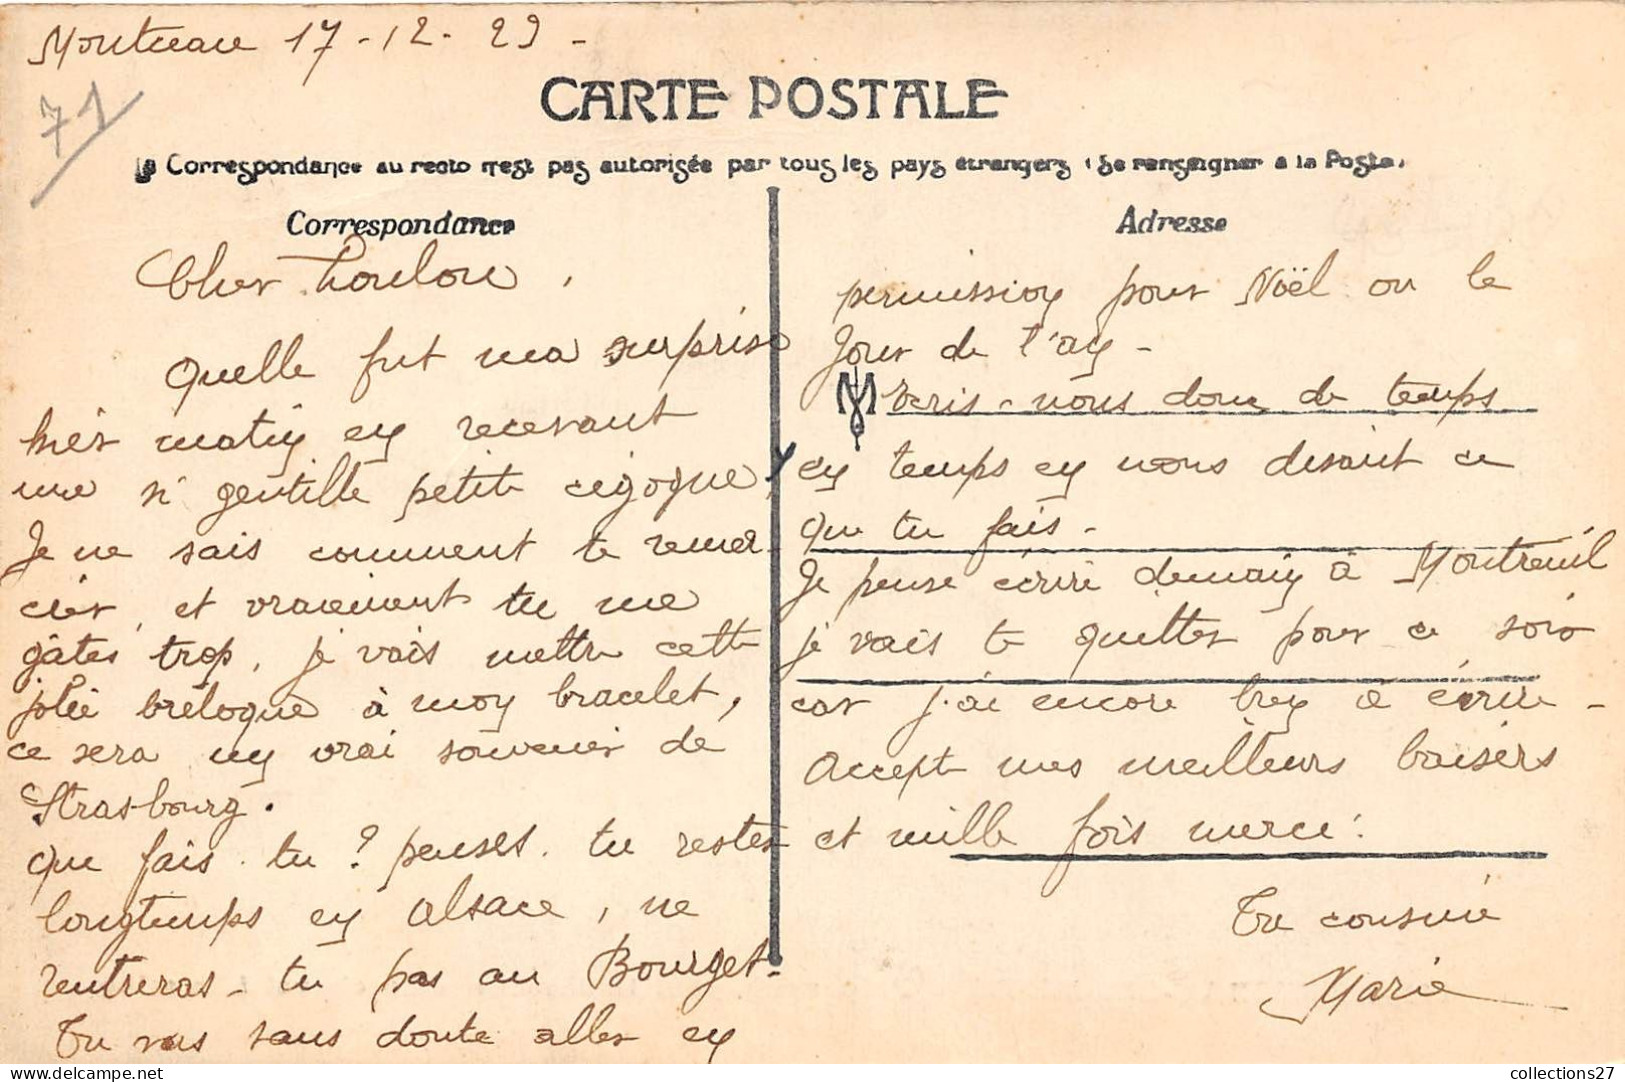 Montceau 17-12-29-
71
CARTE POSTALE
La Correspondance au recto n'est pas autorisée par tous les pays étrangers (Se renseigner à la Poste)
Correspondance
Cher Loulou,
Quelle fut ma surprise
hier matin en recevant
une si gentille petite cigogne,
Je ne sais comment te remer-
cier, et vraiment tu me
gâtes trop, je vais mettre cette
jolie breloque à mon bracelet,
ce sera un vrai souvenir de
Strasbourg.
que fais-tu? penses-tu rester
longtemps en Alsace, ne
rentreras-tu pas au Bourget-
Tu vas sans doute aller en
Adresse
permission pour Noël ou le
Jour de l'an-
M Ecris-nous donc de temps
en temps en nous disant ce
que tu fais-
Je pense écrire demain à Montreuil
je vais te quitter pour ce soir
car j'ai encore bien à écrire-
Accepte mes meilleurs baisers
et mille fois merci.
Ta cousine
Marie
collections27